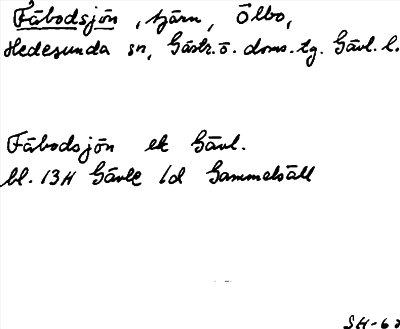 Fäbodsjön, tjärn, Ölbo,
Hedesunda sn, Gästr. ö. doms. tg. Gävl. l.
Fäbodsjön ek Gävl.
bl. 13H Gävle 1d Gammelsäll
SH-67